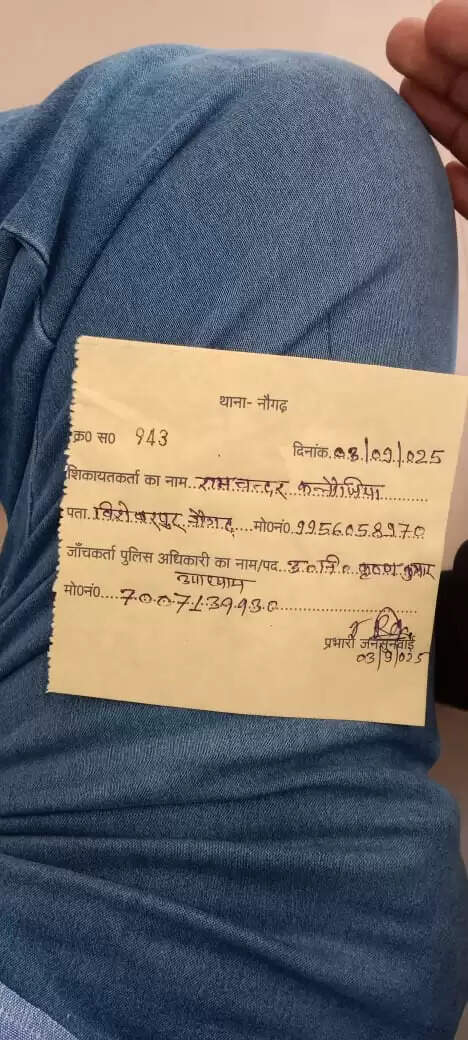 थाना- नौगढ़
क्र0 स0 943
दिनांक..03/09/025
शिकायतकर्ता का नाम..रामचन्दर कन्नौजिया
पता. नौगढ़ मो0नं0.9956058970
जाँचकर्ता पुलिस अधिकारी का नाम/पद..उ0नि0 कृष्ण कुमार
मो0नं0....
प्रभारी जनसुनवाई
03/9/025